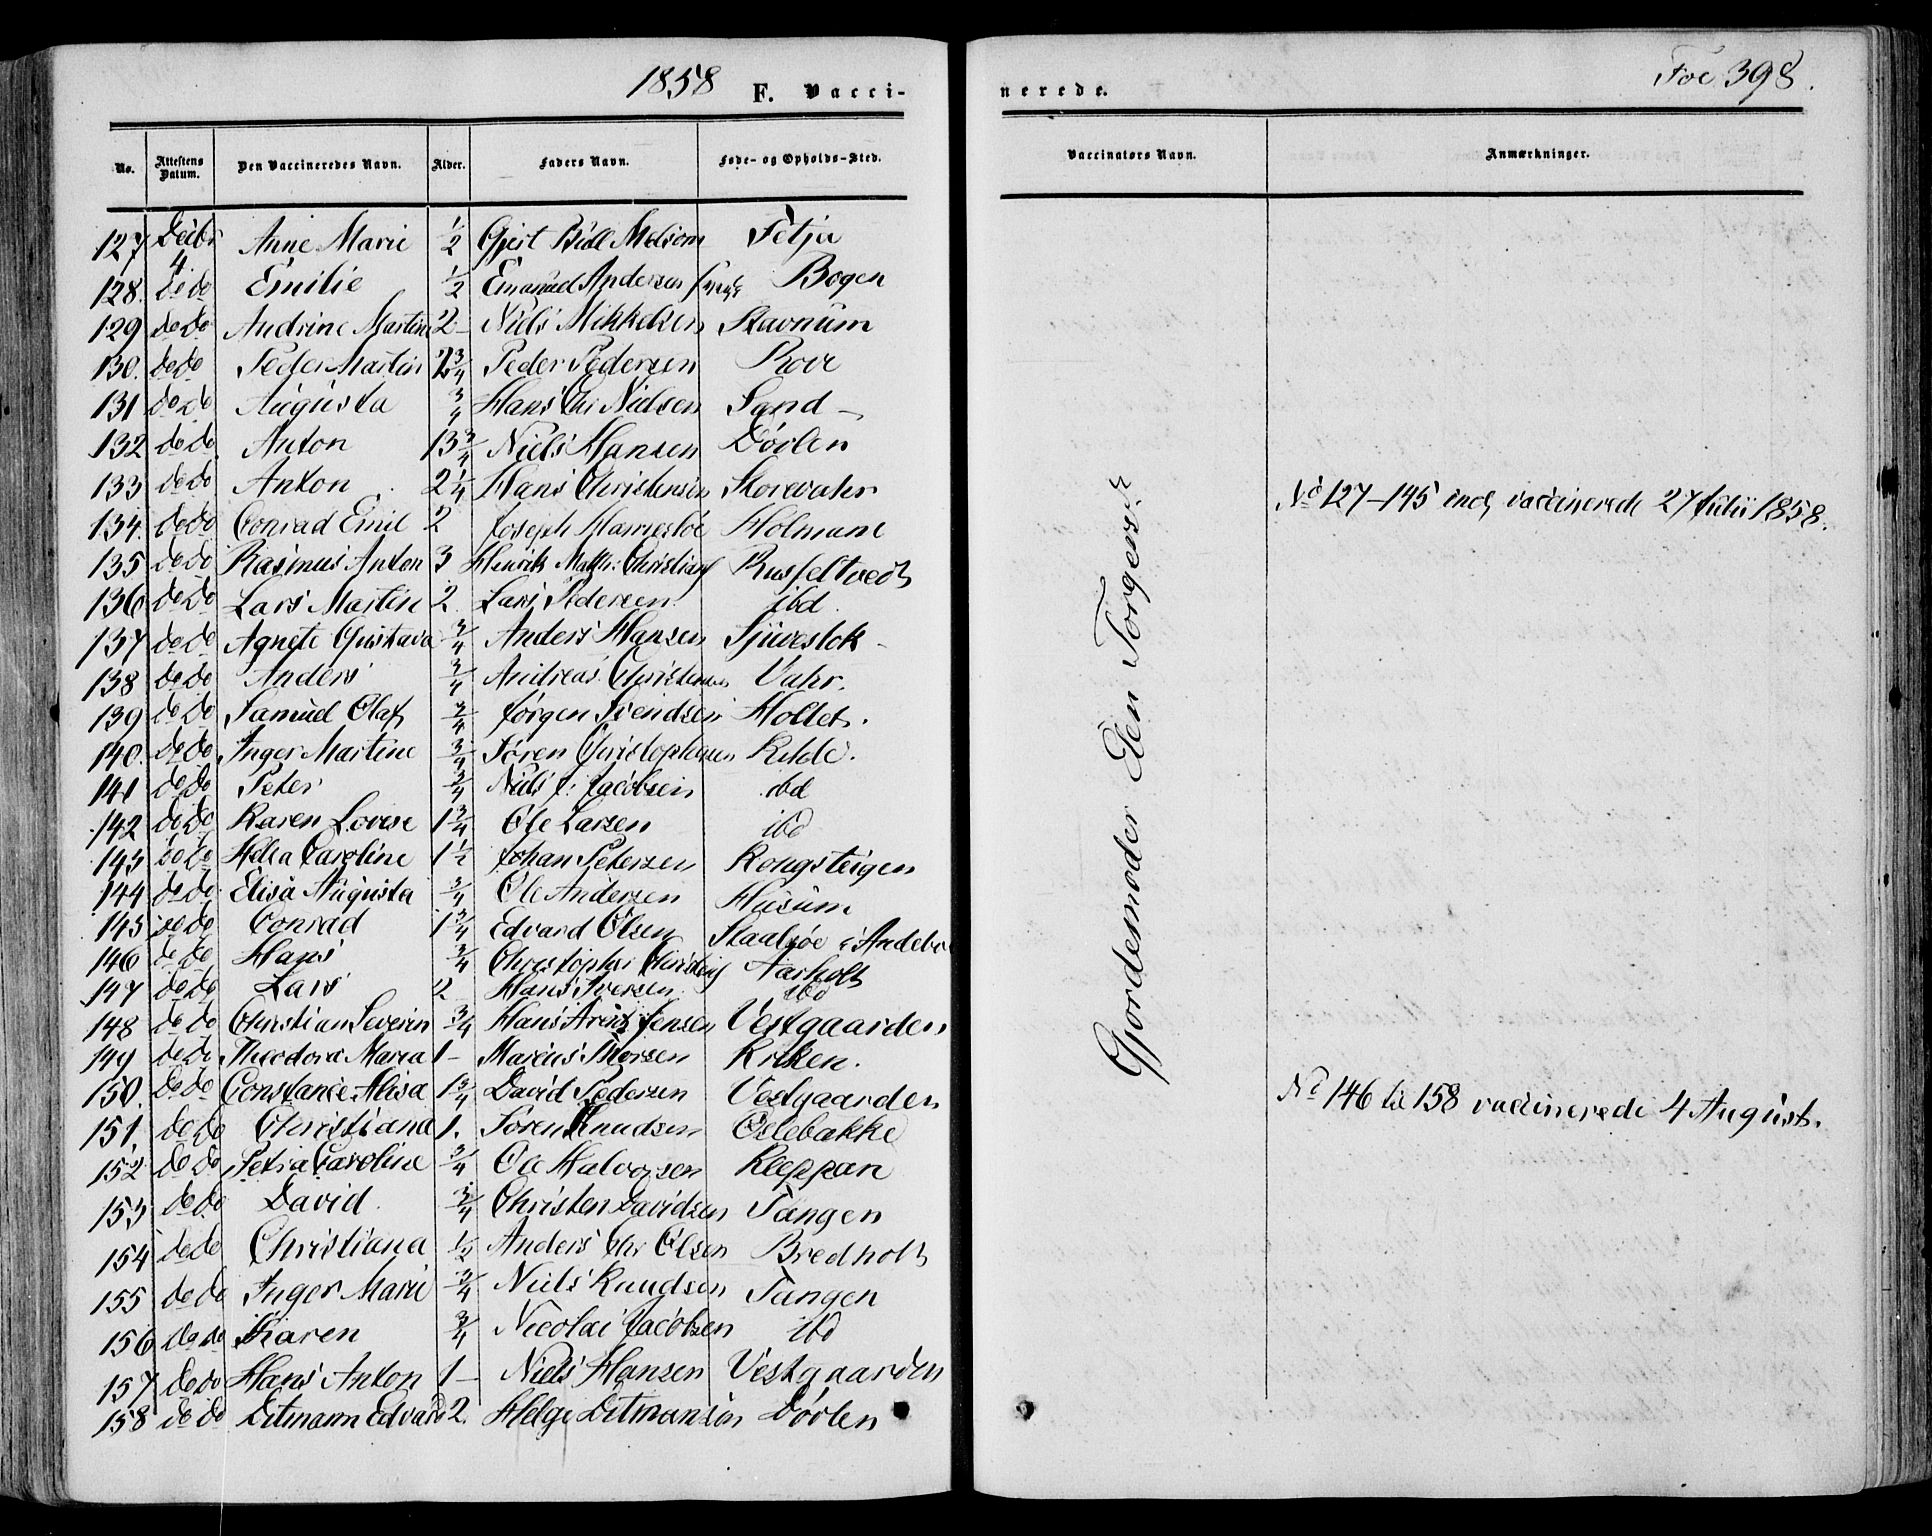 1858 F. Vacci-
nerede. Fol 398.
No. Attestens Datum. Den Vaccineredes Navn. Alder. Faders Navn. Føde- og Opholds-Sted.
Vaccinators Navn. Anmærkninger.
127 Decbr 4 Anne Marie 1/2 Gjert Bull Melsom Fetja
128. do do Emilie 1/2 Emanuel Andersen Bogen
129 do do Andrine Martine 2 – Niels Mikkelsen Stavnum
130. do do Peder Martin 2 3/4 Peder Pedersen Rove
131 do do Augusta 3/4 Hans Chr Nielsen Sand –
132 do do Anton 13 3/4 Niels Hansen Døvlen
133 do do Anton 2 1/4 Hans Christensen Storevahr
134. do do Conrad Emil 2 Joseph Hamesloe Holmane
135 do do Rasmus Anton 3 Henrik Math: Christians Russeltvedt
136 do do Lars Martin 2. Lars Pedersen ibd.
137 do do Agnete Gustava 3/4 Anders Hansen Sjuvestok –
138 do do Anders 3/4 Andreas Christensen Vahr.
139 do do Samuel Olaf 3/4 Jørgen Svendsen Holtet.
140. do do Inger Martine 3/4 Søren Christophersen Kilde.
141 do do Peter 3/4 Niels J: Jacobsen ibd
142 do do Karen Lovise 1 3/4 Ole Larsen ibd
143 do do Helia Caroline 1 1/2 Johan Petersen Kongsteigen
144 do do Elisa Augusta 3/4 Ole Andersen Husum
145 do do Conrad 1 3/4 Edvard Olsen Skaalsøe i Andebo
146 do do Hans 3/4 Christopher Aarholt
147 do do Lars 2. Hans Iversen ibd
148 do do Christian Severin 3/4 Hans Arent Jensen Vestgaarden
149 do do Theodora Maria 1 – Marcus Thorsen Krikken.
150. do do Constance Alisa 1 3/4 David Pedersen Vestgaarden
151. do do Christiana 1. Søren Knudsen Oslebakke
152 do do Petra Caroline 3/4 Ole Halvorsen Kleppan
153 do do David 3/4 Christen Davidsen Tangen
154 do do Christiana 1/2 Anders Chr Olsen Bredholt
155 do do Inger Marie 3/4 Niels Knudsen Tangen
156 do do Karen 3/4 Nicolai Jacobsen ibd
157 do do Hans Anton 1 – Niels Hansen Vestgaarden
158 do do Ditmann Edvard 2. Helge Ditmansen Døvlen
Gjordemoder Elen Torgersr
No 127–145 incl vaccinerede 27 Julii 1858.
No 146 til 158 vaccinerede 4 August.